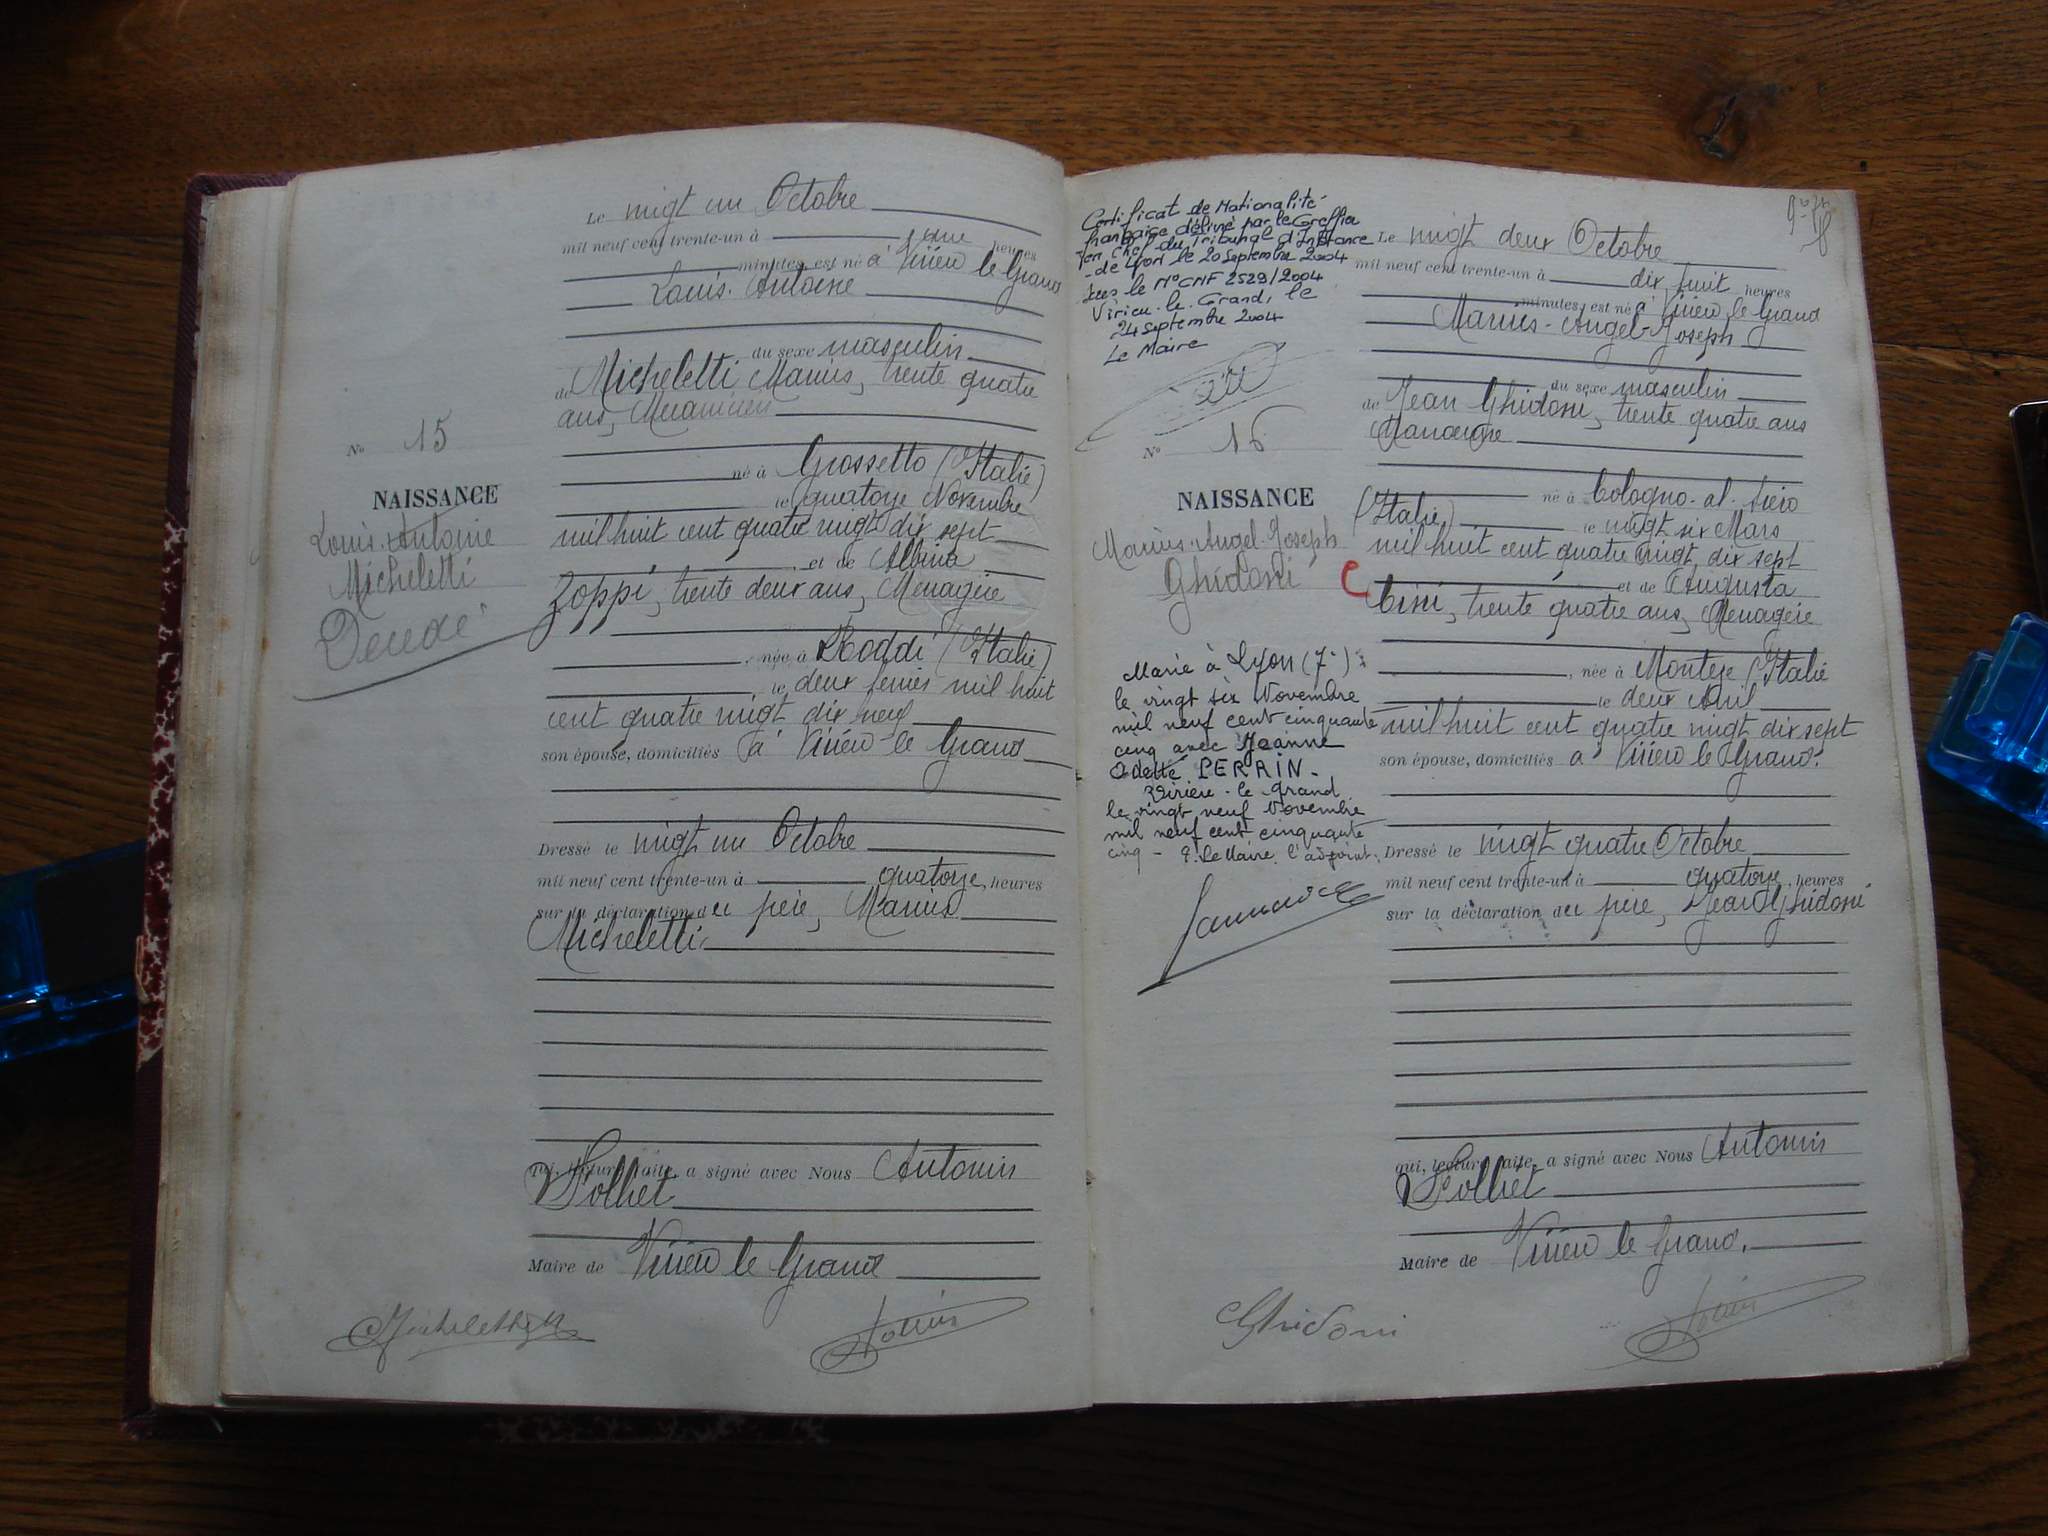 Le vingt un Octobre
mil neuf cent trente-un à une heures
minutes, est né à Virieu le Grand
Louis-Antoine
du sexe masculin
de Micheletti Marius, trente quatre
ans, Mécanicien
né à Grossetto (Italie)
le quatorze Novembre
mil huit cent quatre vingt dix sept
et de Albina
Zoppi, trente deux ans, Menagère
, née à Roddi (Italie)
le deux mil huit
cent quatre vingt dix neuf
son épouse, domiciliés à Virieu-le Grand
Dressé le vingt un Octobre
mil neuf cent trente-un à quatorze heures
sur la déclaration du père, Marius
Micheletti
qui, lecture faite, a signé avec Nous Antonin
Follliet
Maire de Virieu le Grand
No 15
NAISSANCE
Louis-Antoine
Micheletti
Décédé
Certificat de Nationalité
française délivré par le Greffier
en Chef du Tribunal d'Instance
de Lyon le 20 septembre 2004
sous le N° CNF 2529/2004
Virieu-le-Grand, le
24 septembre 2004
Le Maire
No 16
NAISSANCE
Marius-Angel-Joseph
Ghidoni
Marié à Lyon (7e)
le vingt six Novembre
mil neuf cent cinquante
cinq avec Jeanne
Odette PERRIN -
Virieu-le-Grand
le vingt neuf Novembre
mil neuf cent cinquante
cinq - P. Le Maire, l'adjoint.
Le vingt deux Octobre
mil neuf cent trente-un à dix huit heures
minutes, est né à Virieu le Grand
Marius-Angel-Joseph
du sexe masculin
de Jean Ghidoni, trente quatre ans
Manoeuvre
né à Cologno-al-Serio
(Italie) le vingt six Mars
mil huit cent quatre vingt dix sept
et de Augusta
Cisi, trente quatre ans, Menagère
, née à Montese (Italie
le deux Avril
mil huit cent quatre vingt dix sept
son épouse, domiciliés à Virieu le Grand
Dressé le vingt quatre Octobre
mil neuf cent trente-un à quatorze, heures
sur la déclaration du père, Jean Ghidoni
qui, lecture faite, a signé avec Nous Antonin
Folliet
Maire de Virieu le Grand.
Ghidoni